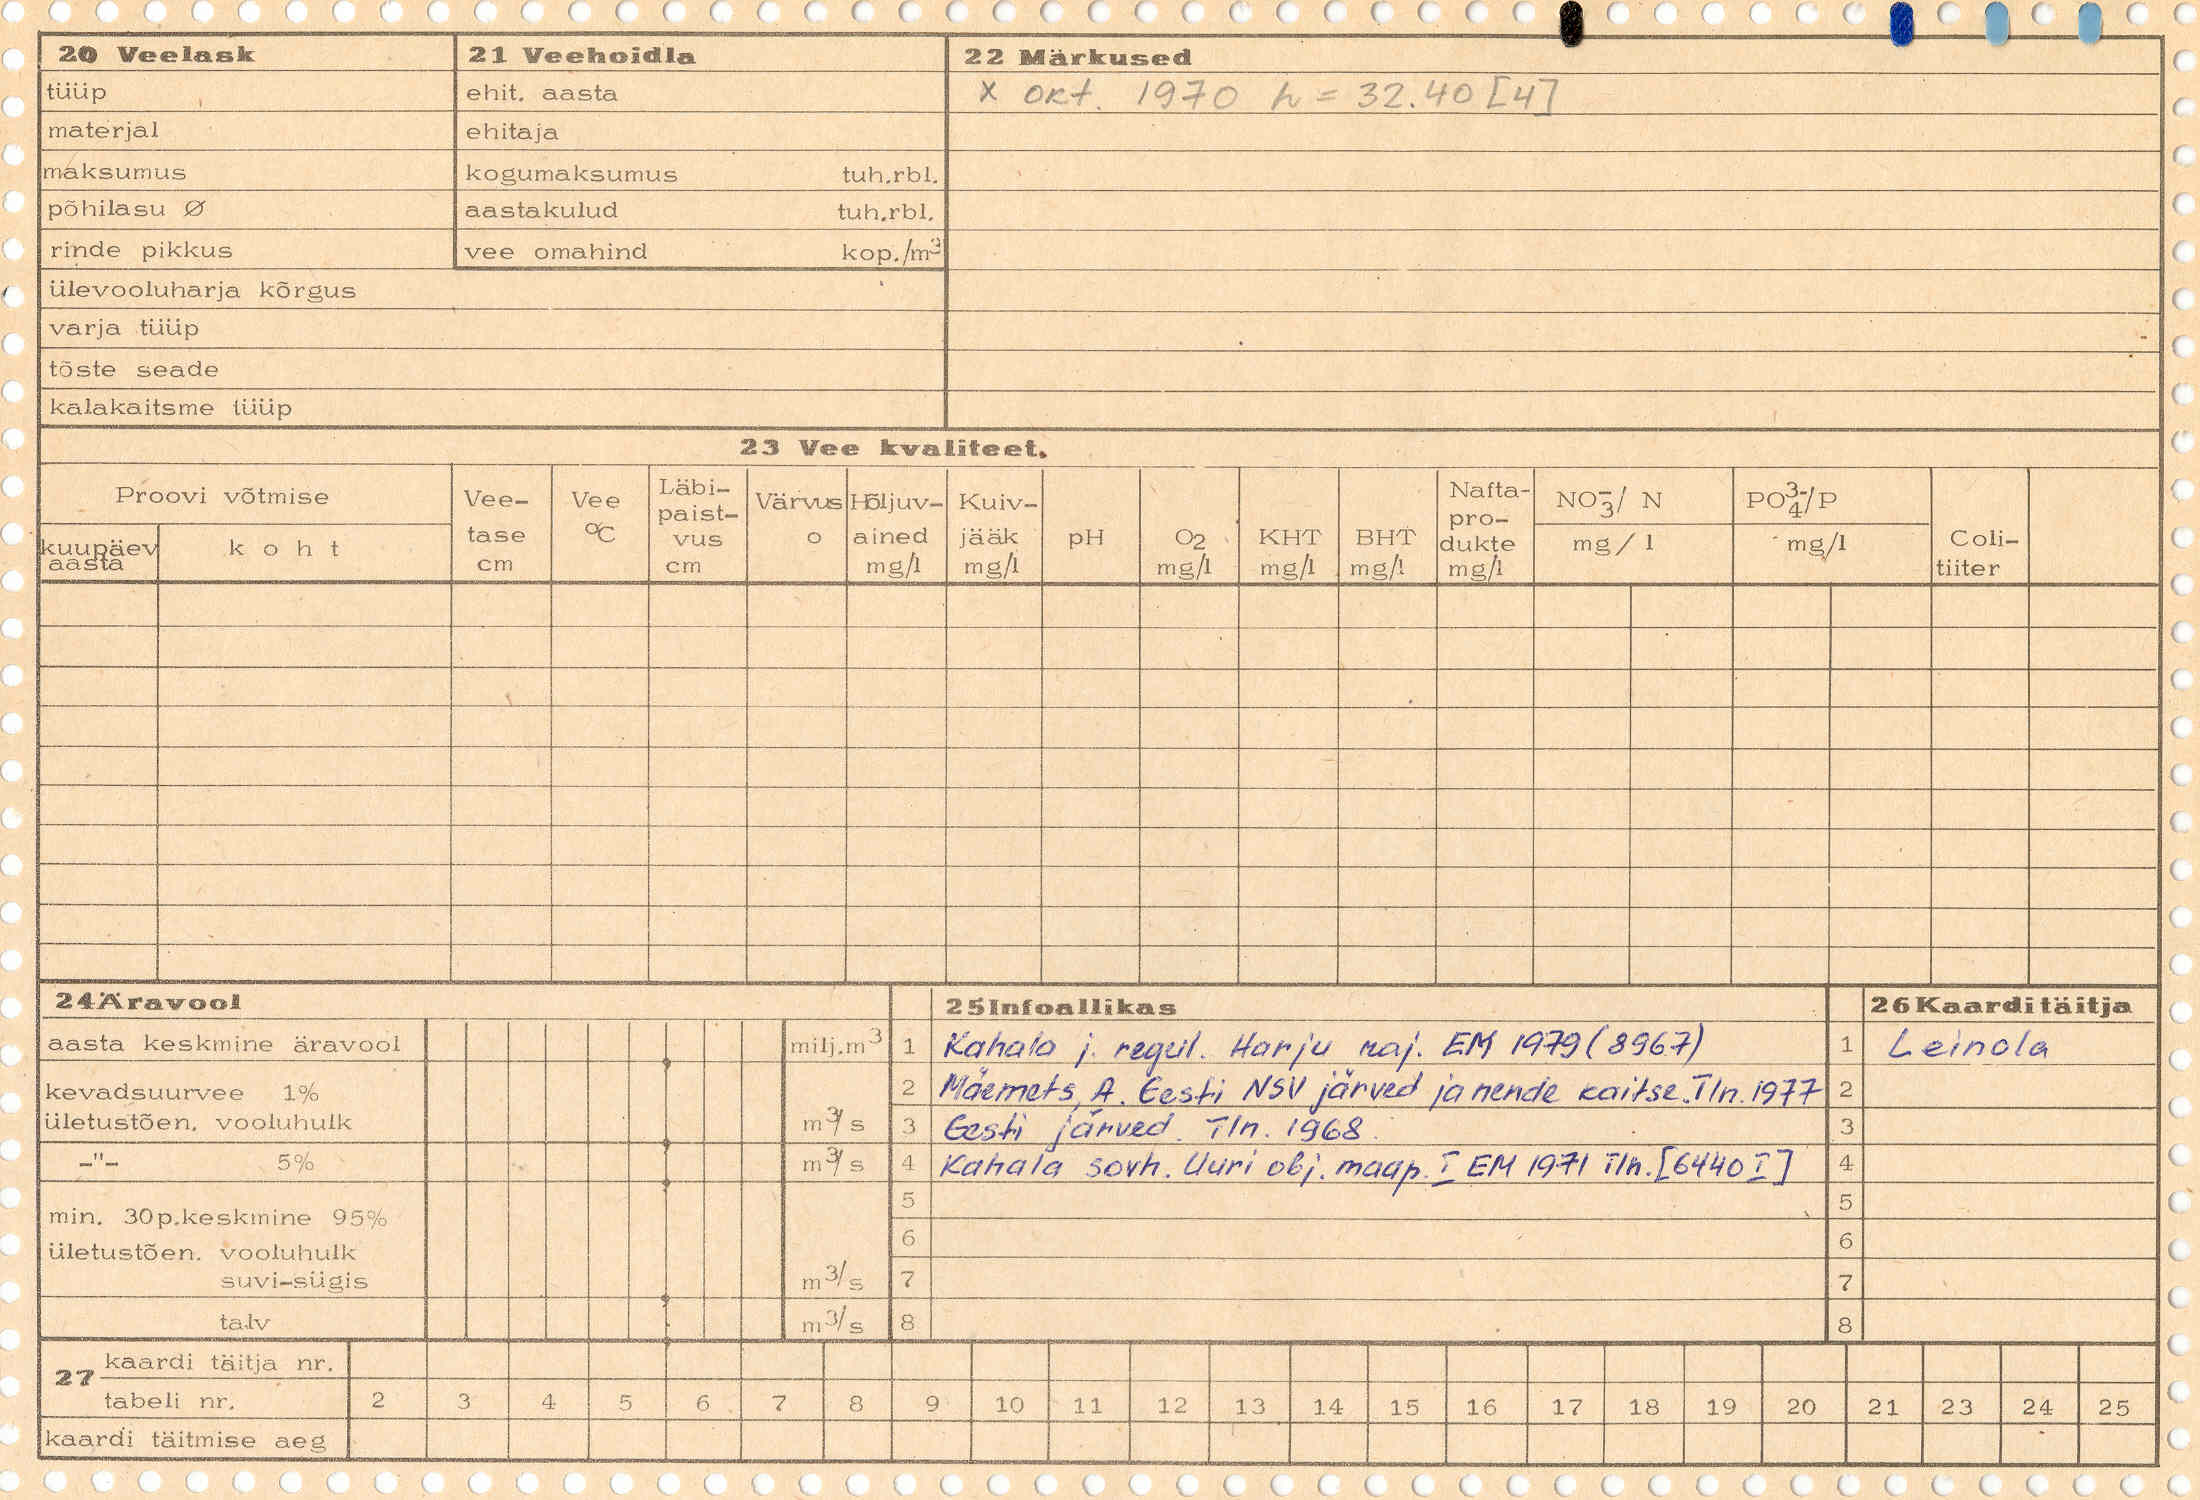 20 Veelask
tüüp
materjal
maksumus
põhilasu Ø
rinde pikkus
ülevooluharja kõrgus
varja tüüp
tõste seade
kalakaitsme tüüp
21 Veehoidla
ehit. aasta
ehitaja
kogumaksumus tuh.rbl.
aastakulud tuh.rbl.
vee omahind kop./m³
22 Märkused
x okt. 1970 h = 32.40 [4]
23 Vee kvaliteet.
Proovi võtmise
kuupäev
aasta
k o h t
Vee-
tase
cm
Vee
°C
Läbi-
paist-
vus
cm
Värvus
o
Hõljuv-
ained
mg/l
Kuiv-
jääk
mg/l
pH
O₂
mg/l
KHT
mg/l
BHT
mg/l
Nafta-
pro-
dukte
mg/l
NO₃⁻/ N
mg/l
PO₄³⁻/P
mg/l
Coli-
tiiter
24 Äravool
aasta keskmine äravool milj.m³
kevadsuurvee 1%
ületustõen. vooluhulk m³/s
-"- 5% m³/s
min. 30p.keskmine 95%
ületustõen. vooluhulk
suvi-sügis m³/s
talv m³/s
25 Infoallikas
1 Kahala j. regul. Harju raj. EM 1979 (8967)
2 Mäemets, A. Eesti NSV järved ja nende kaitse. Tln. 1977
3 Eesti järved. Tln. 1968.
4 Kahala sovh. Uuri obj. maap. I EM 1971 Tln. [6440 I]
5
6
7
8
26 Kaarditäitja
1 Leinola
2
3
4
5
6
7
8
27 kaardi täitja nr.
tabeli nr. 2 3 4 5 6 7 8 9 10 11 12 13 14 15 16 17 18 19 20 21 23 24 25
kaardi täitmise aeg